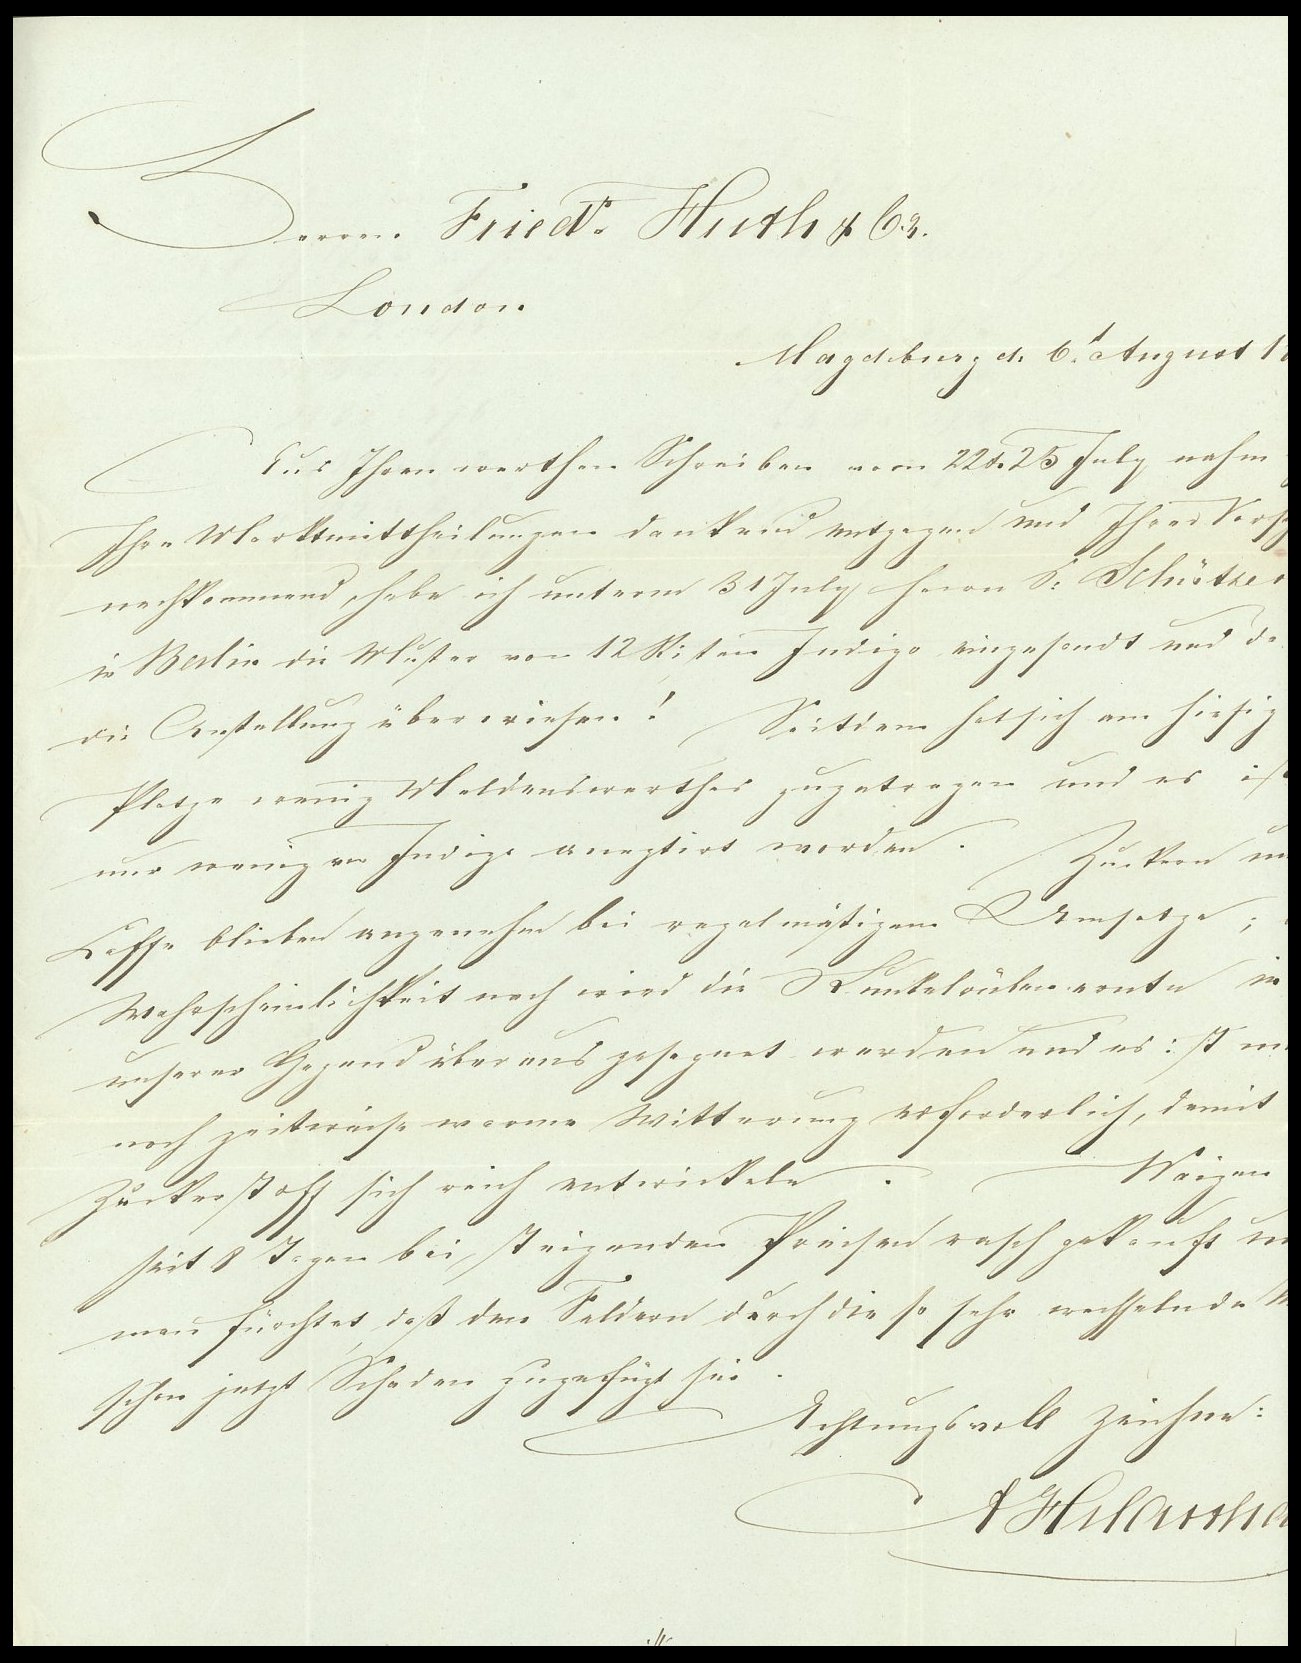 Herren Friedr. Huth & Co.
London
Magdeburg d. 6t August 18
Aus Ihren werthen Schreiben vom 22 & 25 July nahm
Ihre Marktmittheilungen dankend entgegen und Ihrer
nachkommend, habe ich unterm 31 July Herrn S: Schütze
in Berlin die Muster von 12 Kisten Indigo eingesandt und
die Anstellung überwiesen! Seitdem hat sich am hiesig
Platze wenig Meldenswerthes zugetragen und es ist
nur wenig von Indigo worden. Zuckern un
Caffe blieben angenehm bei regelmäßigem Umsatze;
Wahrscheinlichkeit nach wird die Runkelrübenernte in
unserer Gegend überaus gesegnet werden und es ist nu
noch zeitweise warme Witterung erforderlich, damit
Zuckerstoff sich reich entwickele. Waizen
seit 8 Tagen bei steigenden Preisen rasch gekauft un
man fürchtet, daß den Feldern durch die so sehr wechselnde W
schon jetzt Schaden zugefügt sei.
Achtungsvoll zeichne: